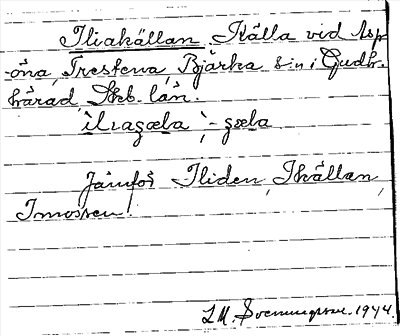 Iliakällan. Källa vid Asp
-öna, Trestena, Bjärka s:n i Gudh.
härad, Skb. län.
ìlɩagæla, - gæla
Jämför Iliden, Ikällan,
Imossen!
L.M. Svenungsson. 1944.